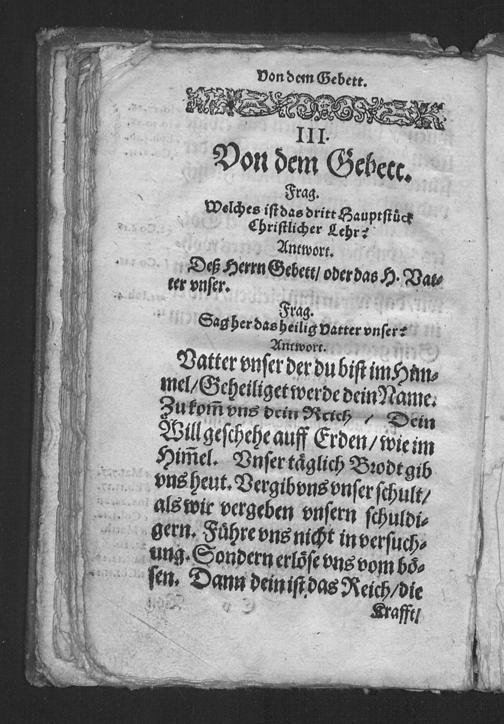 Von dem Gebett.
III.
Von dem Gebett.
Frag.
Welches ist das dritt Hauptstück
Christlicher Lehr?
Antwort.
Deß Herrn Gebett/ oder das H. Vat-
ter vnser.
Frag.
Sag her das heilig Vatter vnser?
Antwort.
Vatter vnser der du bist im Him-
mel/ Geheiliget werde dein Name.
Zu kom̃ vns dein Reich / Dein
Will geschehe auff Erden/ wie im
Him̃el. Vnser täglich Brodt gib
vns heut. Vergib vns vnser schult/
als wir vergeben vnsern schuldi-
gern. Führe vns nicht in versuch-
ung. Sondern erlöse vns vom bö-
sen. Dann dein ist das Reich/ die
Krafft/